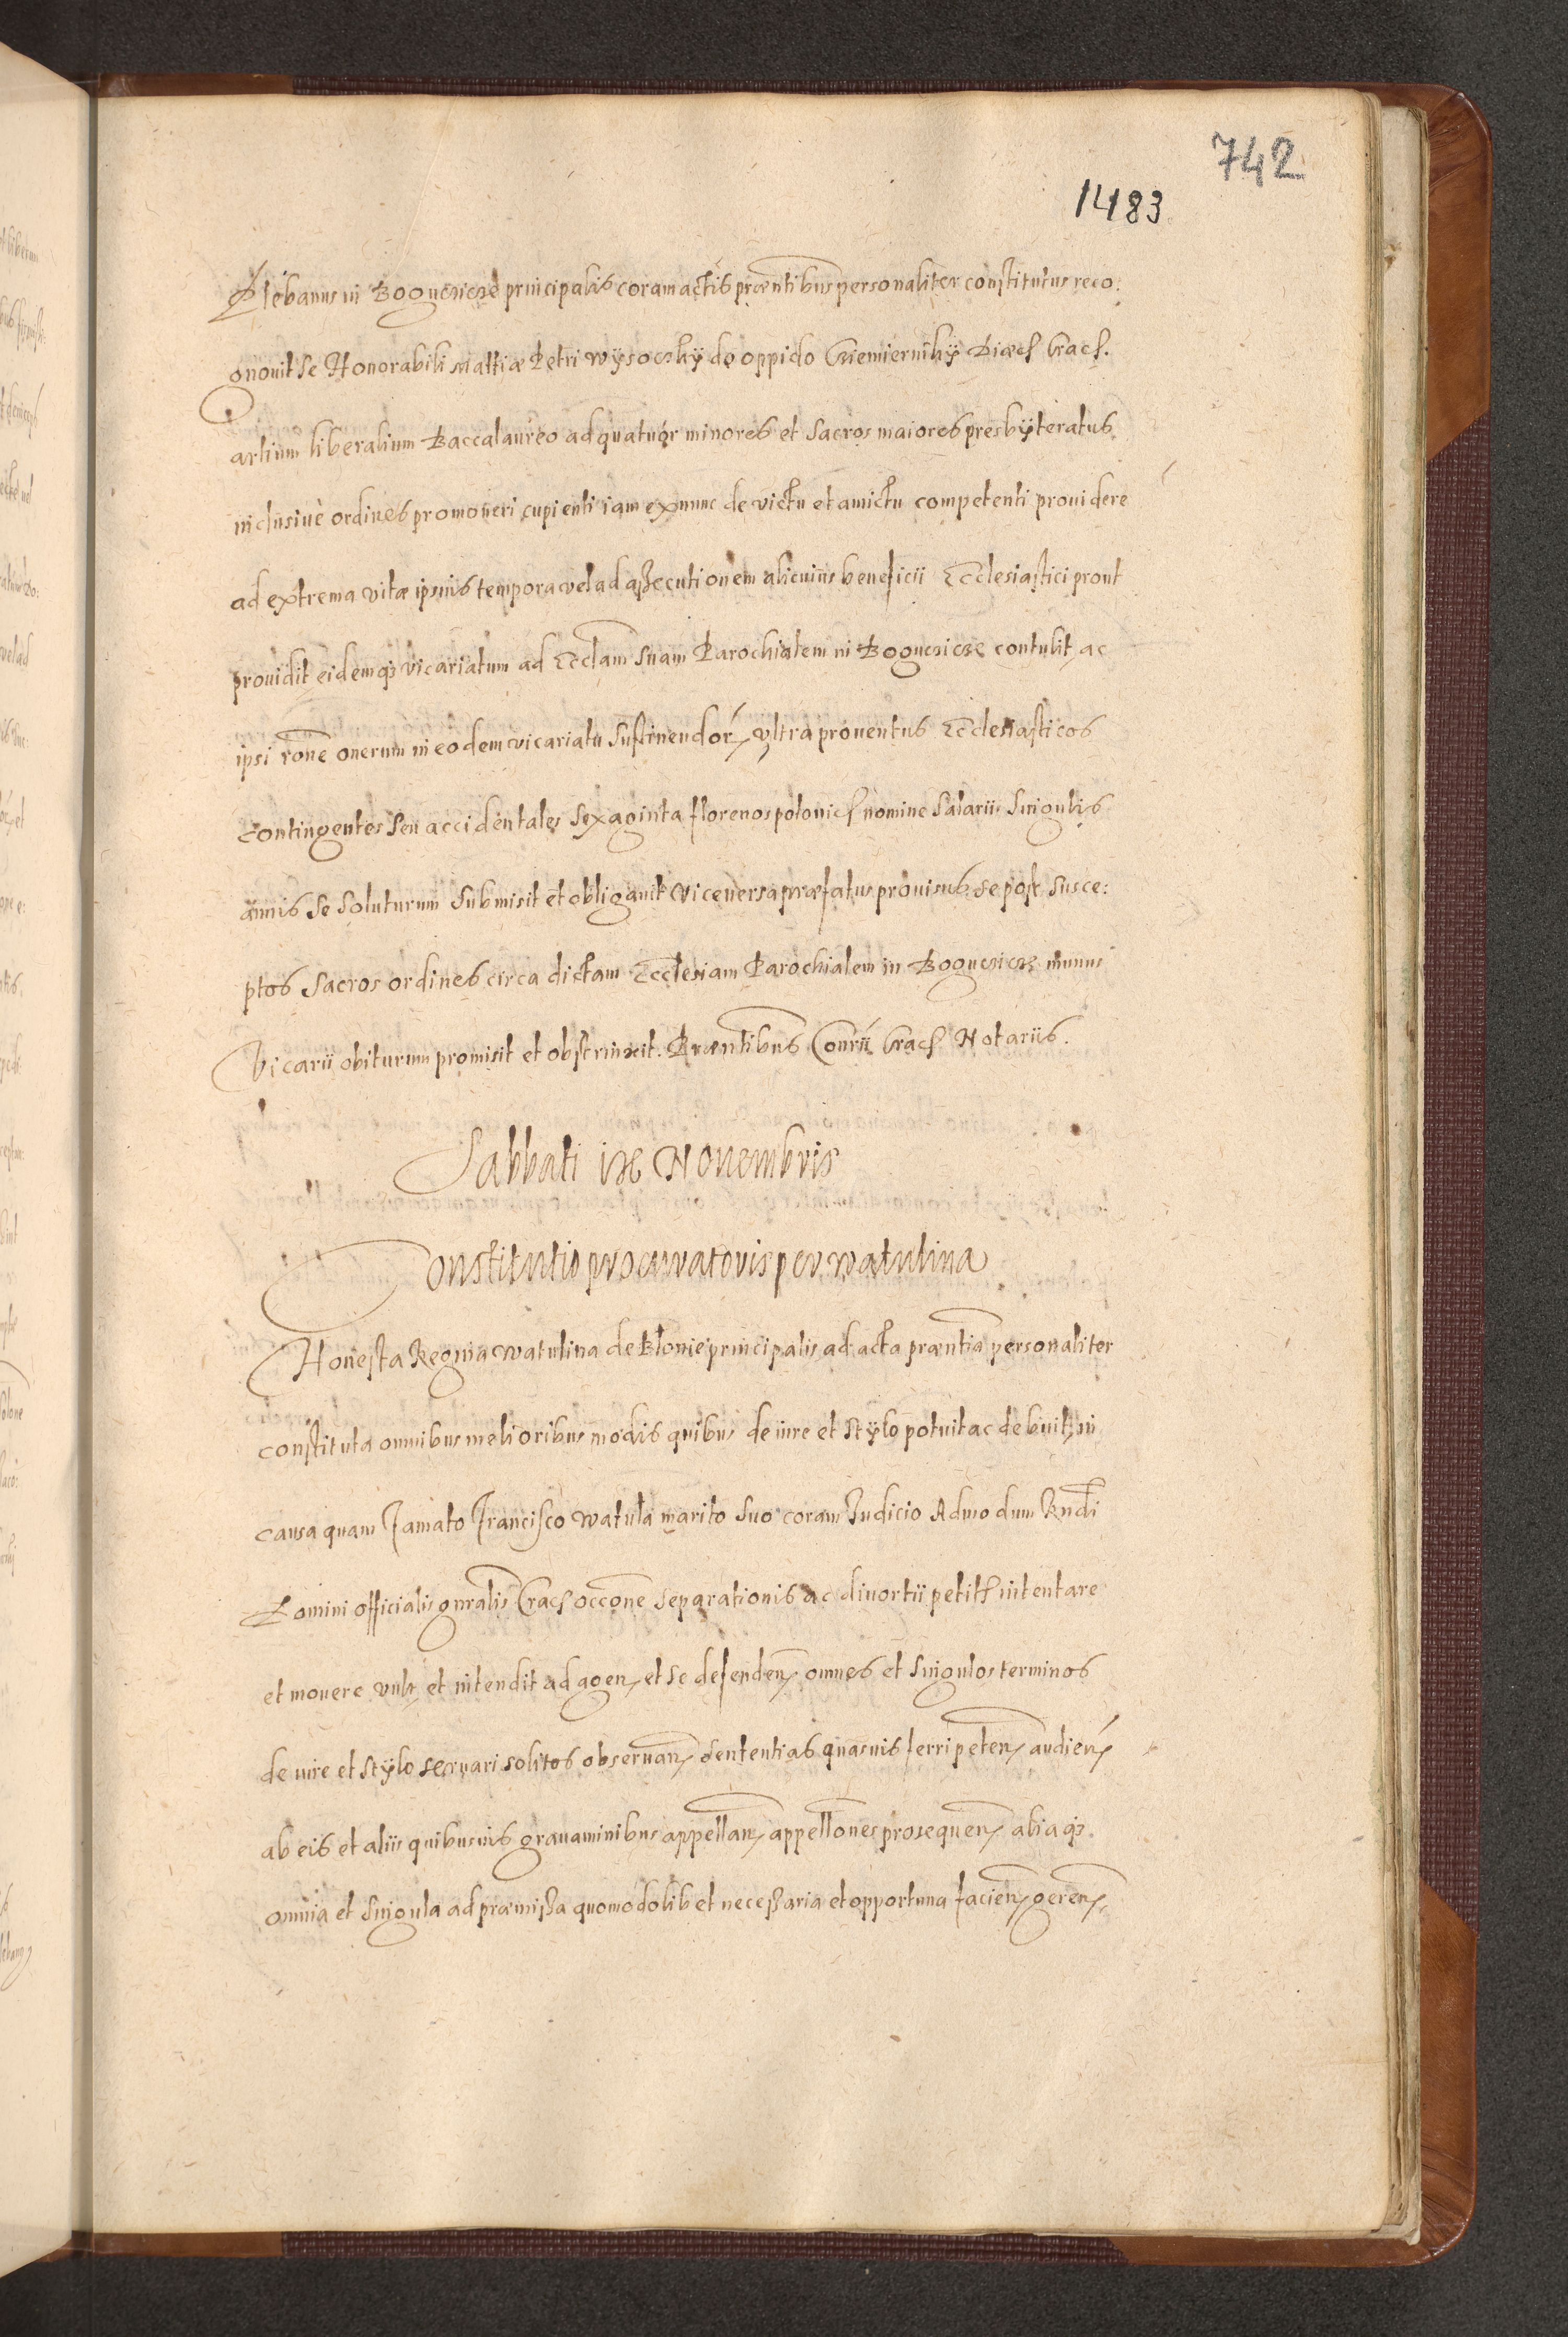 742
1483
Plebanus in Bogucicze principalis coram actis præntibus personaliter constitutus reco:
gnouit se Honorabili Mattiæ Petri Wÿsoczkÿ de oppido Czemiernikÿ Diæcs Cracs.
artium liberalium Baccalaureo ad quatuor minores et sacros maiores presbÿteratus
inclusiuè ordines promoueri cupienti iam ex nunc de victu et amictu competenti prouidere
ad extrema vitæ ipsius tempora vel ad assecutionem alicuius beneficii Ecclesiastici prout
prouidit eidemq3 vicariatum ad Eccłam suam Parochialem in Bogucicze contulit, ac
ipsi rone onerum in eodem vicariatu sustinendor, vltra prouentus Ecclesiasticos
contingentes seu accidentales sexaginta florenos polonics nomine salarii singulis
annis se soluturum submisit et obligauit vice versa præfatus prouisus se post susce:
ptos sacros ordines circa dictam Ecclesiam Parochialem in Bogucicze munus
Vicarii obiturum promisit et obstrinxit. Præntibus Conrii Cracs Notariis.
Sabbati ix Nouembris
Constitutio procuratoris per watulina
Honesta Regina watulina de Błonie principalis ad acta præntia personaliter
constituta omnibus melioribus modis quibus de iure et stÿlo potuit ac debuit, in
causa quam Famato Francisco watula marito suo coram Iudicio Admodum Rndi
Domini officialis gnralis Cracs occone separationis ac diuortii petits intentare
et mouere vult et intendit ad agen, et se defenden, omnes et singulos terminos
de iure et stÿlo seruari solitos obseruan, sententias quasuis ferri peten, audien,
ab eis et aliis quibusuis grauaminibus appellan, appellones prosequen, aliaq3
omnia et singula ad præmissa quomodolibet necessaria et opportuna facien, geren,